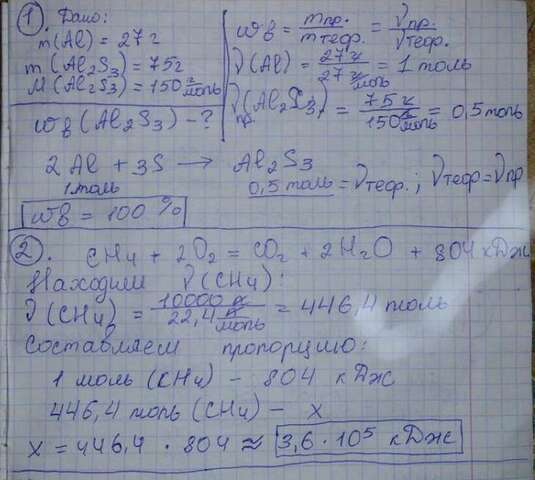 1. Дано:
m(Al) = 27г
m(Al2S3) = 75г
M(Al2S3) = 150 г/моль
ωв(Al2S3) - ?
ωв = mпр./mтеор. = νпр./νтеор.
ν(Al) = 27г/27г/моль = 1 моль
νпр.(Al2S3) = 75г/150г/моль = 0,5 моль
2Al + 3S → Al2S3
1моль 0,5 моль = νтеор.; νтеор = νпр
ωв = 100 %
2. CH4 + 2O2 = CO2 + 2H2O + 804 кДж
Находим ν(CH4):
ν(CH4) = 10000 л/22,4 л/моль = 446,4 моль
Составляем пропорцию:
1 моль (CH4) - 804 кДж
446,4 моль (CH4) - x
x = 446,4 · 804 ≈ 3,6 · 10⁵ кДж